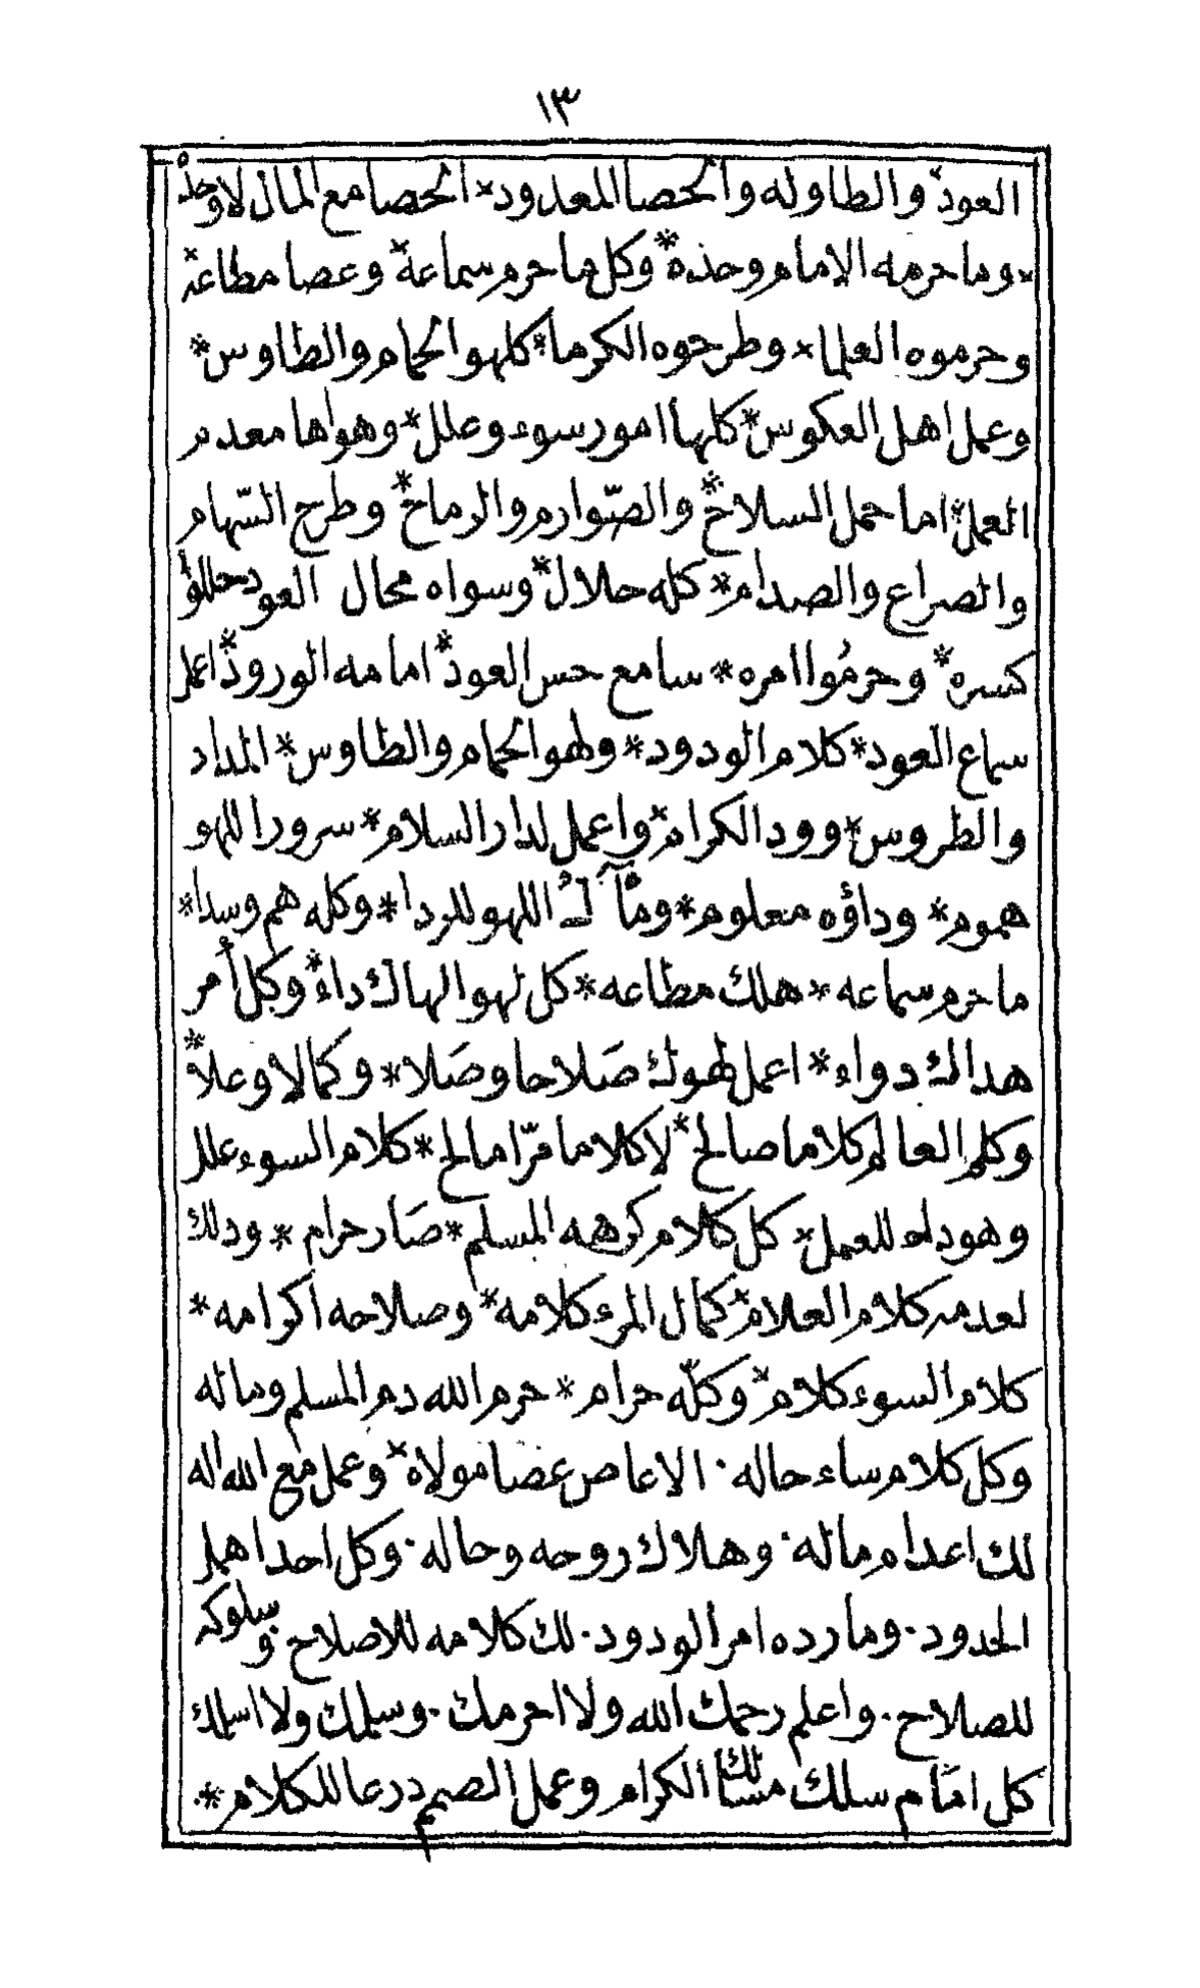 ١٣
العود والطاوله والحصا المعدود * الحصا مع المال لا وحده
* وما حرمه الامام وحده * وكل ما حرم سماعه * وعصا مطاعه *
وحرموه العلما * وطرحوه الكرما * كلهو الحمام والطاوس *
وعمل اهل العكوس * كلها امور سوء وعلل * وهواها معدم
العمل * اما حمل السلاح * والصّوارم والرماح * وطرح السّهام
والصراع والصدام * كله حلال * وسواه محال العود حللوا
كسره * وحرمُوا امره * سامع حس العود * امامه الورود * اعمل
سماع العود * كلام الودود * ولهو الحمام والطاوس * المداد
والطروس * وود الكرام * واعمل لدار السلام * سرور اللهو
هموم * وداؤه معلوم * ومآل اللهو للردا * وكله هم وسدا *
ما حرم سماعه * هلك مطاعه * كل لهو الهاك داء * وكل أمر
هداك دواء * اعمل لهوك صَلاحا وصَلا * وكمالا وعلا *
وكلم العالم كلاما صالح * لا كلاما مرّا مالح * كلام السوء علل
وهو داء للعمل * كل كلام كرهه المسلم * صَار حرام * ودلك
لعدمه كلام العلام * كمال المرء كلامه * وصلاحه اكرامه *
كلام السوء كلام * وكلّه حرام * حرم الله دم المسلم وماله
وكل كلام ساء حاله ٠ الا عاص عصا مولاه * وعمل مع الله اله
لك اعدام ماله ٠ وهلاك روحه وحاله ٠ وكل احد اهمل
الحدود ٠ وما رده امر الودود ٠ لك كلامه للاصلاح ٠ وسلوكه
للصلاح ٠ واعلم رحمك الله ولا احرمك ٠ وسلمك ولا اسلمك
كل امَام سلك مسالك الكرام وعمل الصمم درعا للكلام *